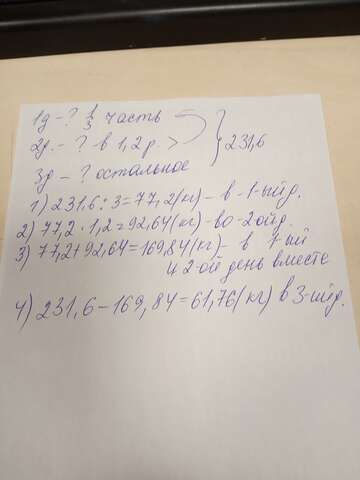 1д - ? 1/3 часть
2д. - ? в 1,2 р. >
231,6
3д - ? остальное
1) 231,6 : 3 = 77,2 (кг) - в 1-ый д.
2) 77,2 · 1,2 = 92,64 (кг) - во 2-ой д.
3) 77,2 + 92,64 = 169,84 (кг) - в 1-ый
и 2-ой день вместе
4) 231,6 - 169,84 = 61,76 (кг) в 3-ий д.